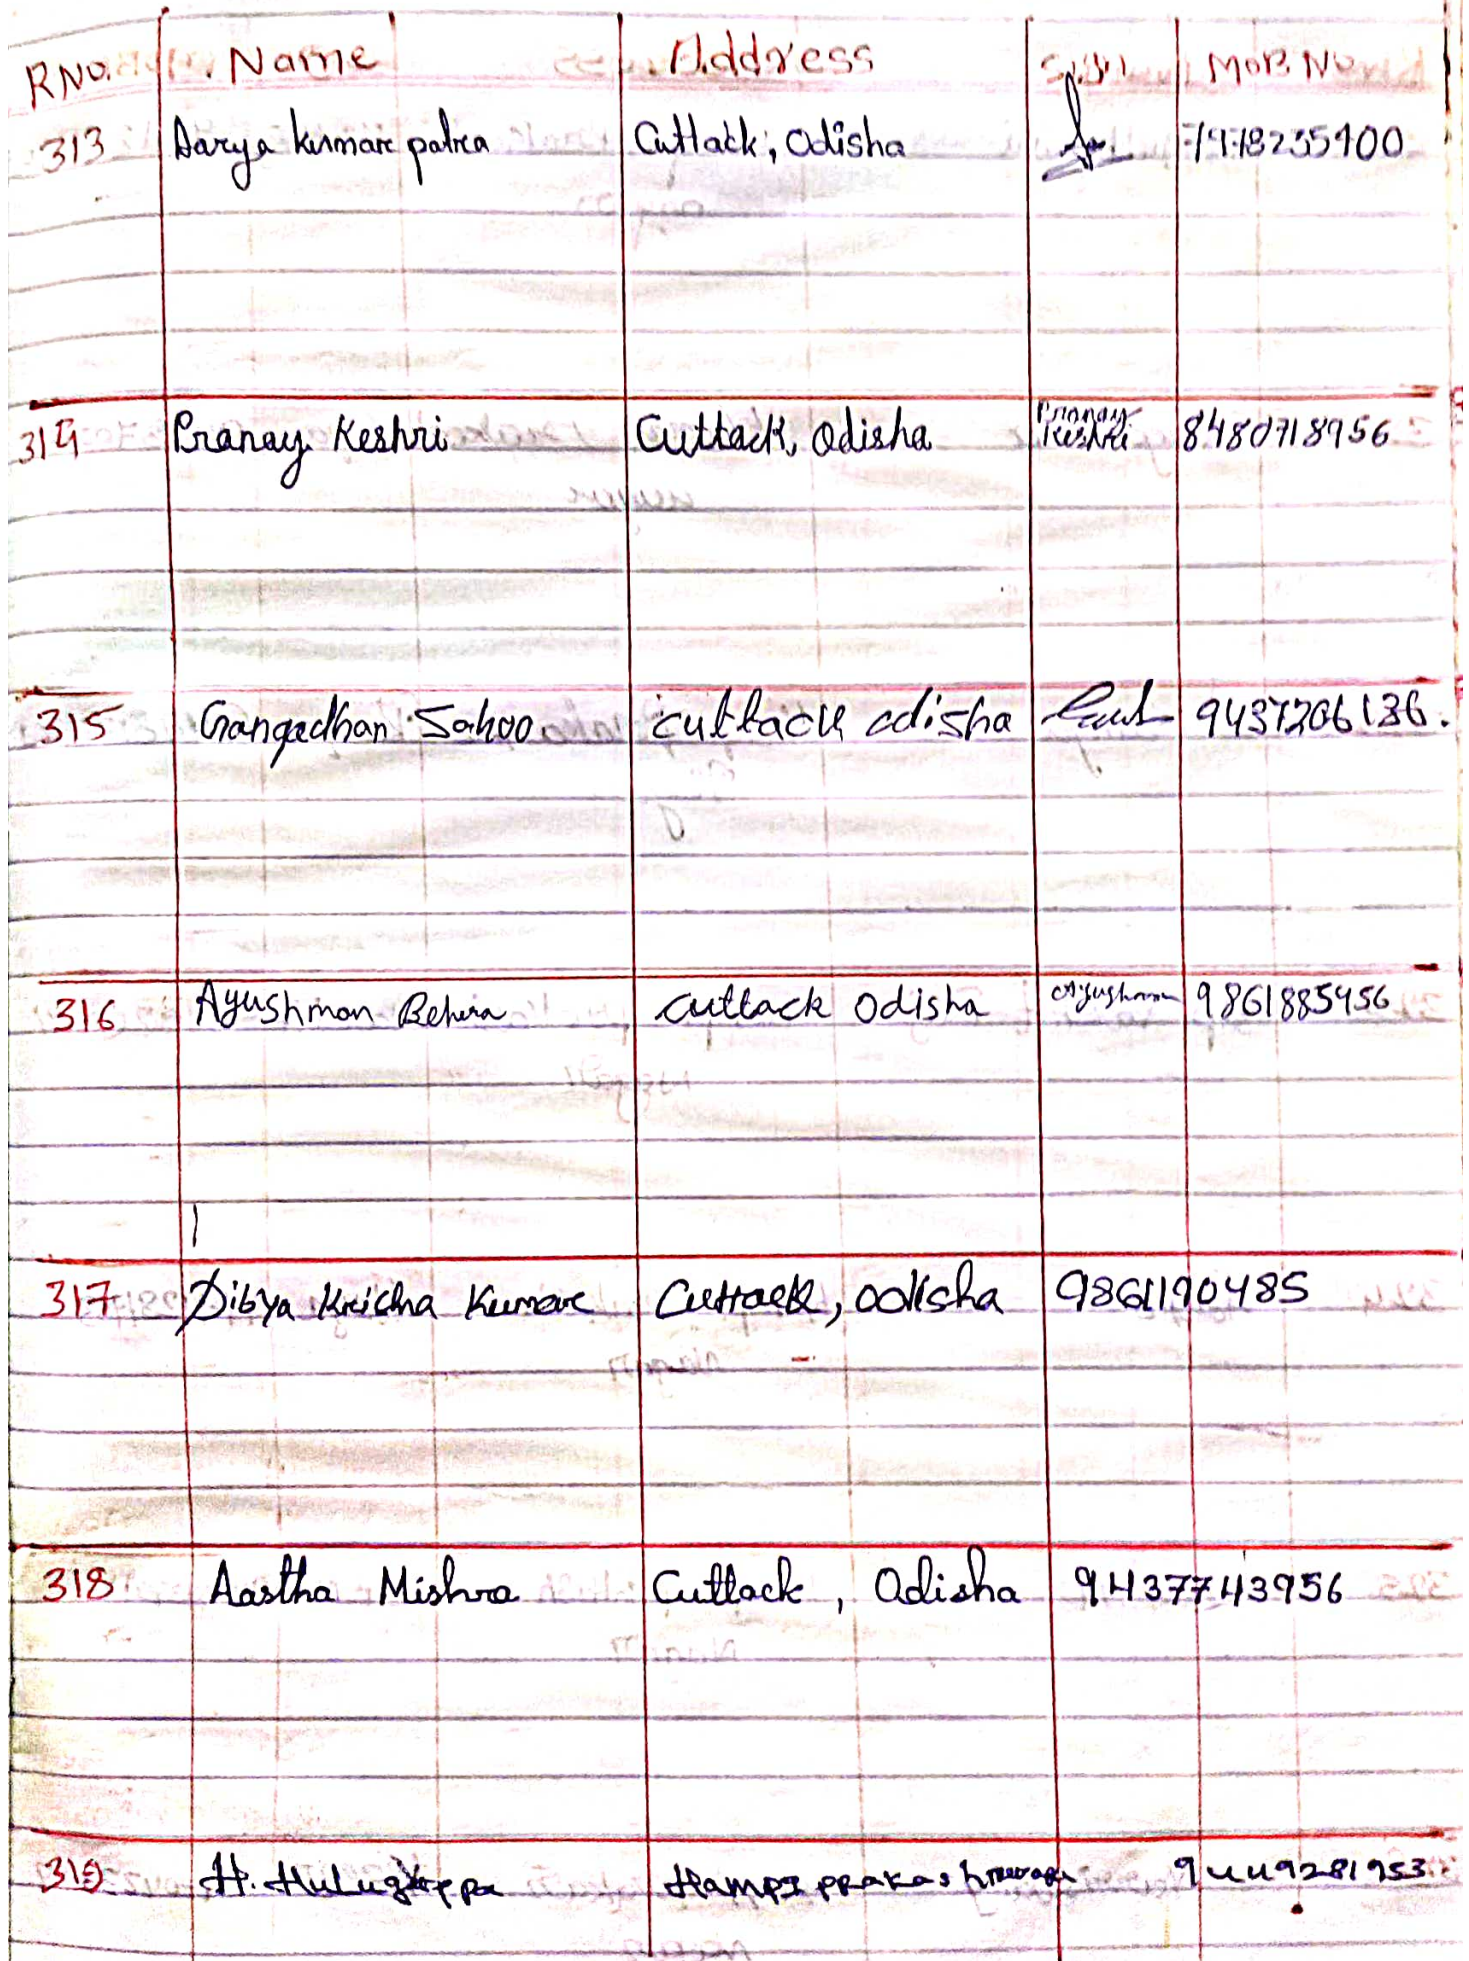 R.No. Name Address Sign MOB. No
313 Aarya kumar patra Cuttack, Odisha
314 Pranay Keshri Cuttack, Odisha Pranay Keshri 8480718956
315 Gangadhar Sahoo cuttack odisha 9437206136.
316 Ayushman Behera cuttack Odisha Ayushman 9861885956
317 Dibya Kricha Kumar Cuttack, odisha 9861190485
318 Aastha Mishra Cuttack, Odisha 9437743956
319 H. Hulugappa Hampi prakash 9449281953